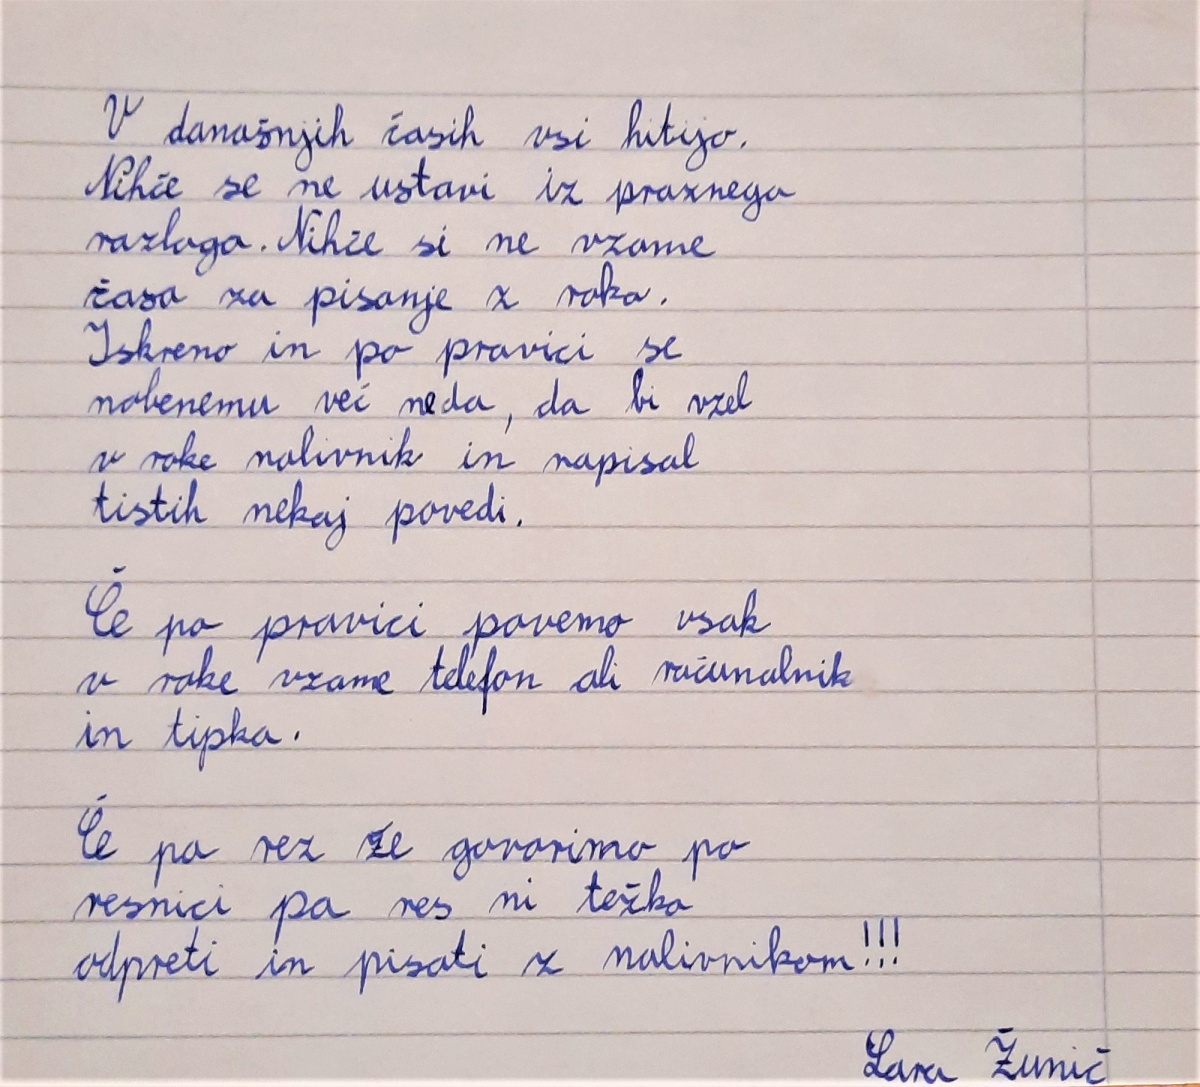 V današnjih časih vsi hitijo.
Nihče se ne ustavi iz praznega
razloga. Nihče si ne vzame
časa za pisanje z roko.
Iskreno in po pravici se
nobenemu več neda, da bi vzel
v roke nalivnik in napisal
tistih nekaj povedi.
Če po pravici povemo vsak
v roke vzame telefon ali računalnik
in tipka.
Če pa rez že govorimo po
resnici pa res ni težko
odpreti in pisati z nalivnikom!!!
Lara Žunič